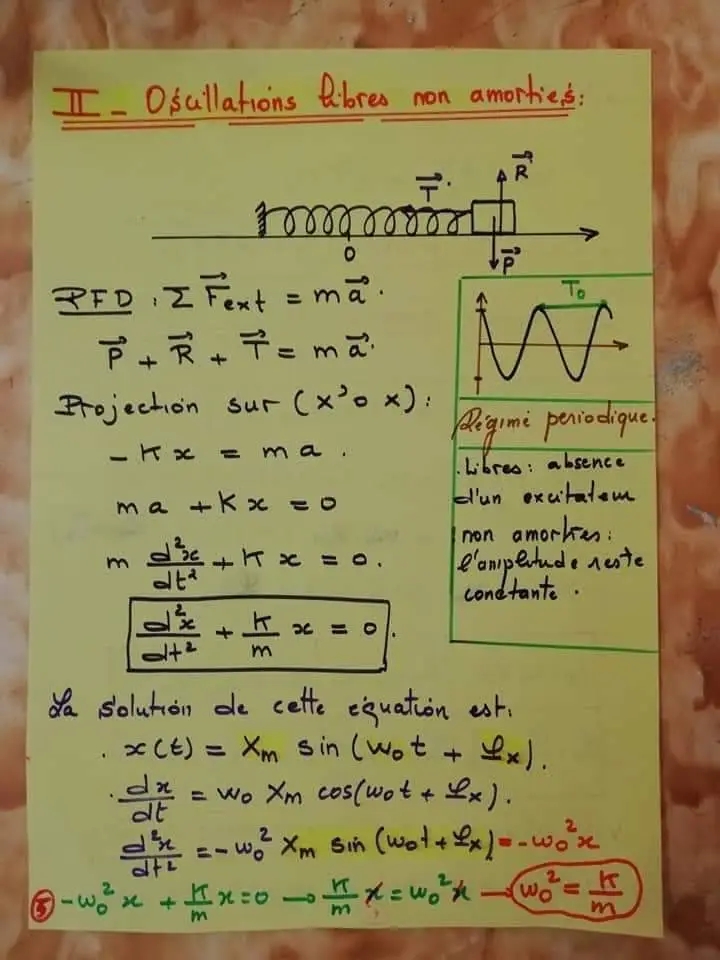 II - Oscillations libres non amorties:
T
R
O
P
PFD : Σ F⃗ext = m a⃗.
P⃗ + R⃗ + T⃗ = m a⃗.
Projection sur (x'ox):
- K x = m a.
m a + K x = 0
m d²x/dt² + K x = 0.
d²x/dt² + K/m x = 0.
T₀
Régime periodique.
. Libres: absence
d'un excitateur
non amorties:
l'amplitude reste
constante.
La solution de cette équation est:
. x(t) = Xm sin (w₀t + φx).
. dx/dt = w₀ Xm cos(w₀t + φx).
d²x/dt² = -w₀² Xm sin (w₀t + φx) = -w₀²x
5 -w₀²x + K/m x = 0 → K/m x = w₀²x → w₀² = K/m